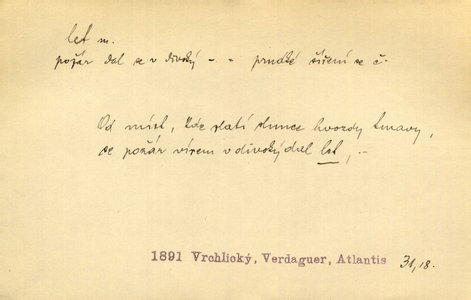 let m.
požár dal se v divoký - - prudké šíření se č.
Od míst, kde zlatí slunce hvozdy tmavý,
se požár vírem v divoký dal let, -
1891 Vrchlický, Verdaguer, Atlantis 31, 18.